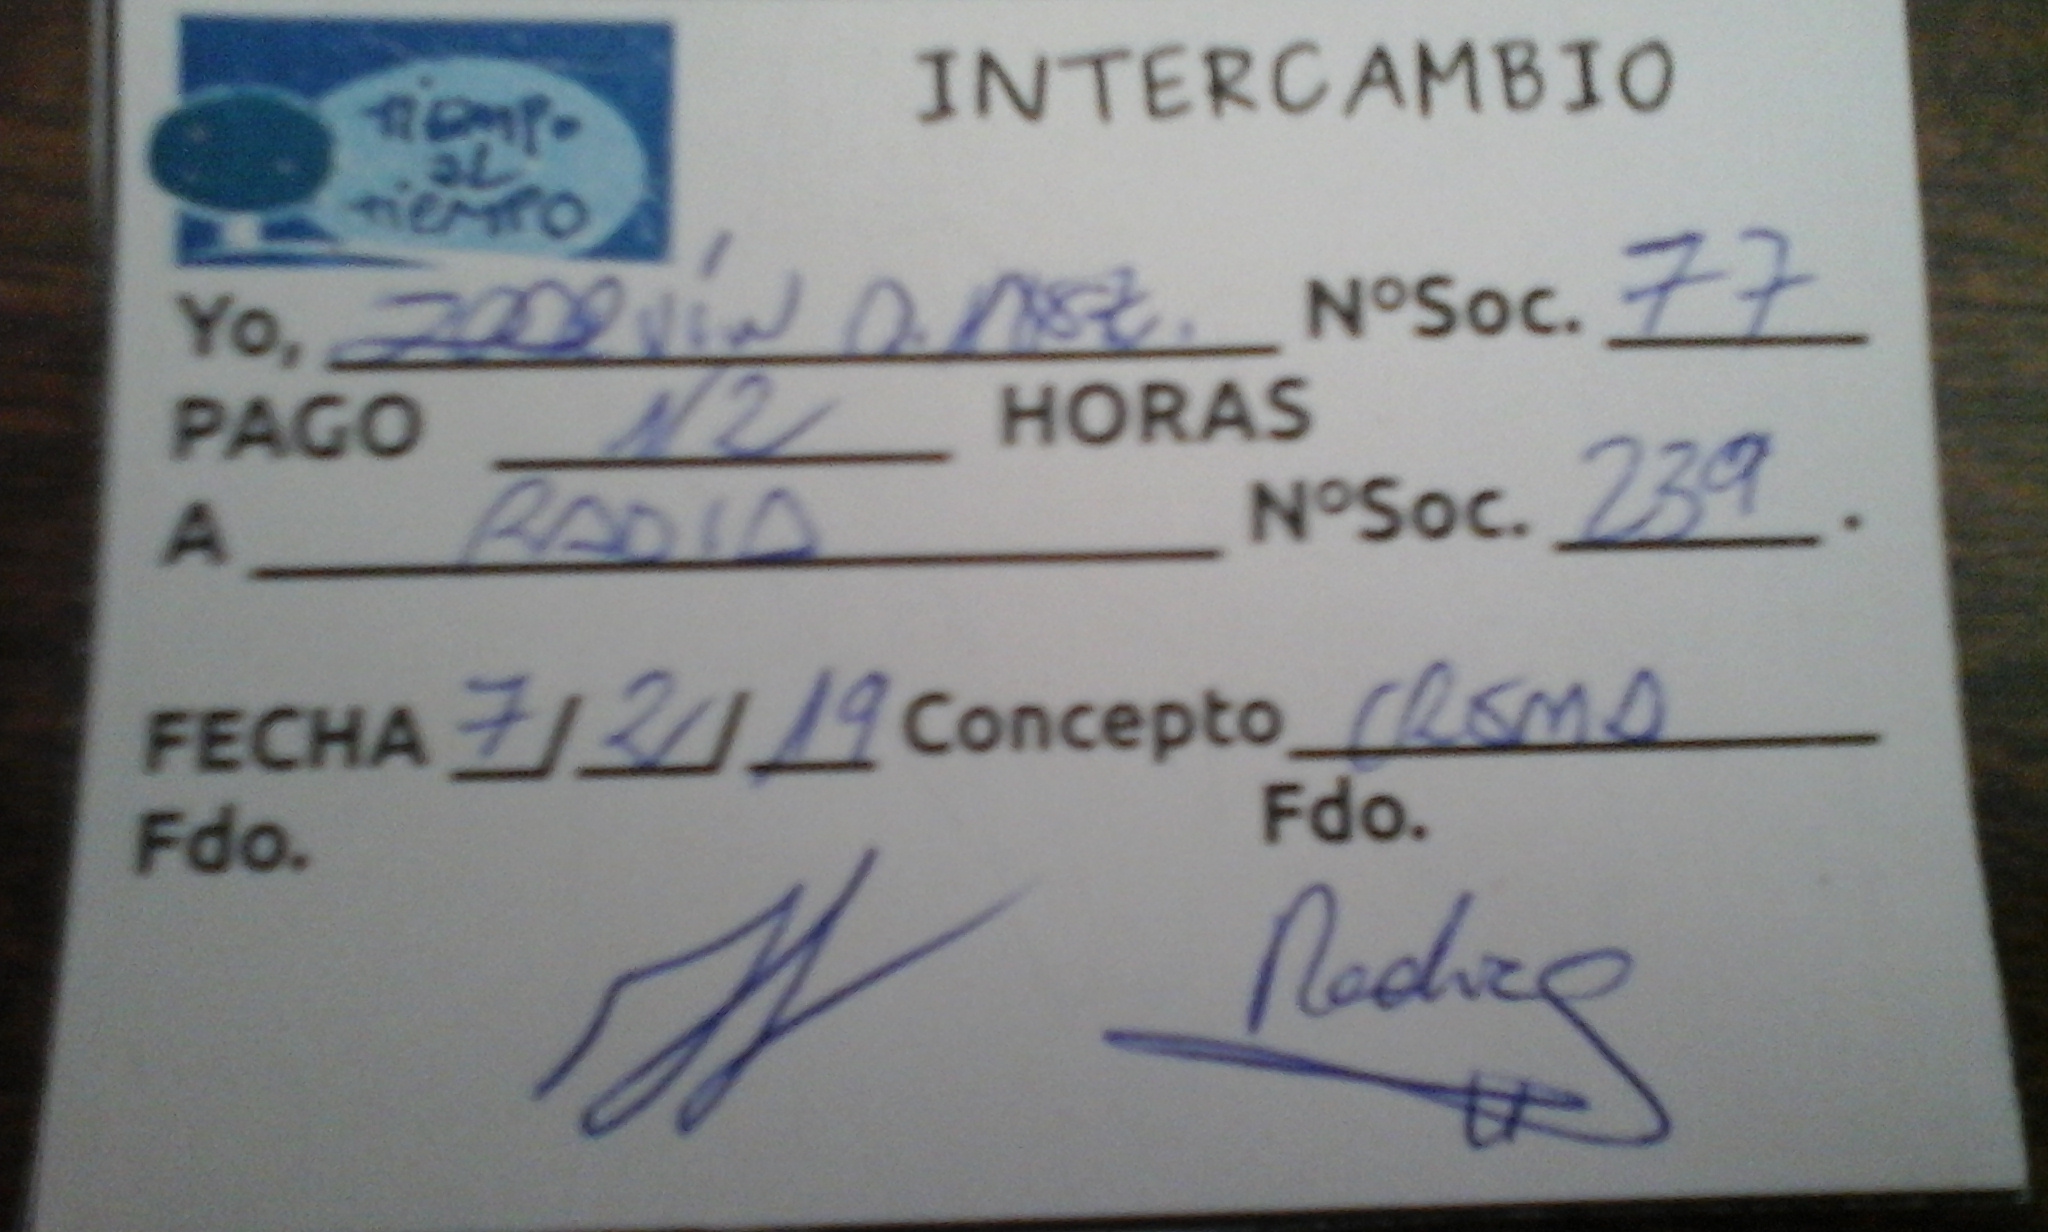 TIEMPO
AL
TIEMPO
INTERCAMBIO
Yo, Joaquín A. Mtez. NºSoc. 77
PAGO 1/2 HORAS
A RADIA NºSoc. 239.
FECHA 7/2/19 Concepto CREMA
Fdo. Fdo.